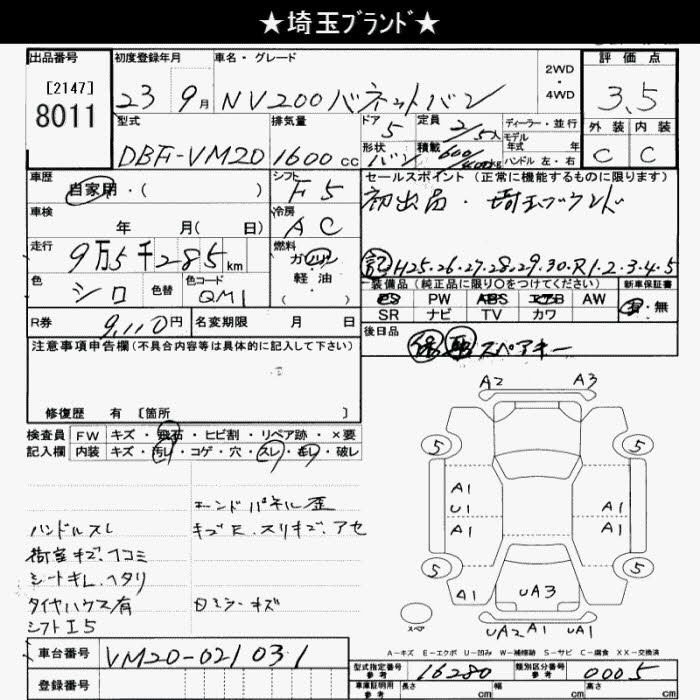 ★埼玉ﾌﾞﾗﾝﾄﾞ★
出品番号
[2147]
8011
初度登録年月
23 9月
車名・グレード
NV200バネットバン
2WD・4WD
評価点
3.5
外装 内装
C C
型式
DBF-VM20
排気量
1600cc
ドア
5
定員
2/5人
形状
バン
積載
600/400kg
ディーラー・並行
モデル年式 年
ハンドル 左・右
車歴
自家用・( )
シフト
F5
セールスポイント (正常に機能するものに限ります)
初出品・埼玉ブランド
車検
年 月( 日)
冷房
AC
走行
9万5千285km
燃料
ガソリン・軽油
記H25.26.27.28.29.30.R1.2.3.4.5
色
シロ
色替
色コード
QM1
装備品(純正品に限り○をつけてください)
PS PW ABS エアB AW
SR ナビ TV カワ
新車保証書
有・無
R券
9,110円
名変期限 月 日
後日品
スペアキー
注意事項申告欄(不具合内容等は具体的に記入して下さい)
修復歴 有 〔箇所 〕
検査員記入欄
FW キズ・飛石・ヒビ割・リペア跡・×要
内装 キズ・汚レ・コゲ・穴・スレ・切レ・破レ
エンドパネル歪
ハンドルスレ
キズE、スリキズ、アセ
荷室キズ、ヘコミ
シートキレ、ヘタリ
タイヤハウス有
白ミラーキズ
シフトI5
A2 A3
5 5
A1
U1 A1
A1 A1
5 5
A1 UA3 A1
スペア
UA2 A1 UA1
A-キズ E-エクボ U-凹み W-補修跡 S-サビ C-腐食 XX-交換済
車台番号
VM20-021031
型式指定番号 参考
16280
類別区分番号 参考
0005
登録番号
車庫証明用 参考
長さ cm 幅 cm 高さ cm